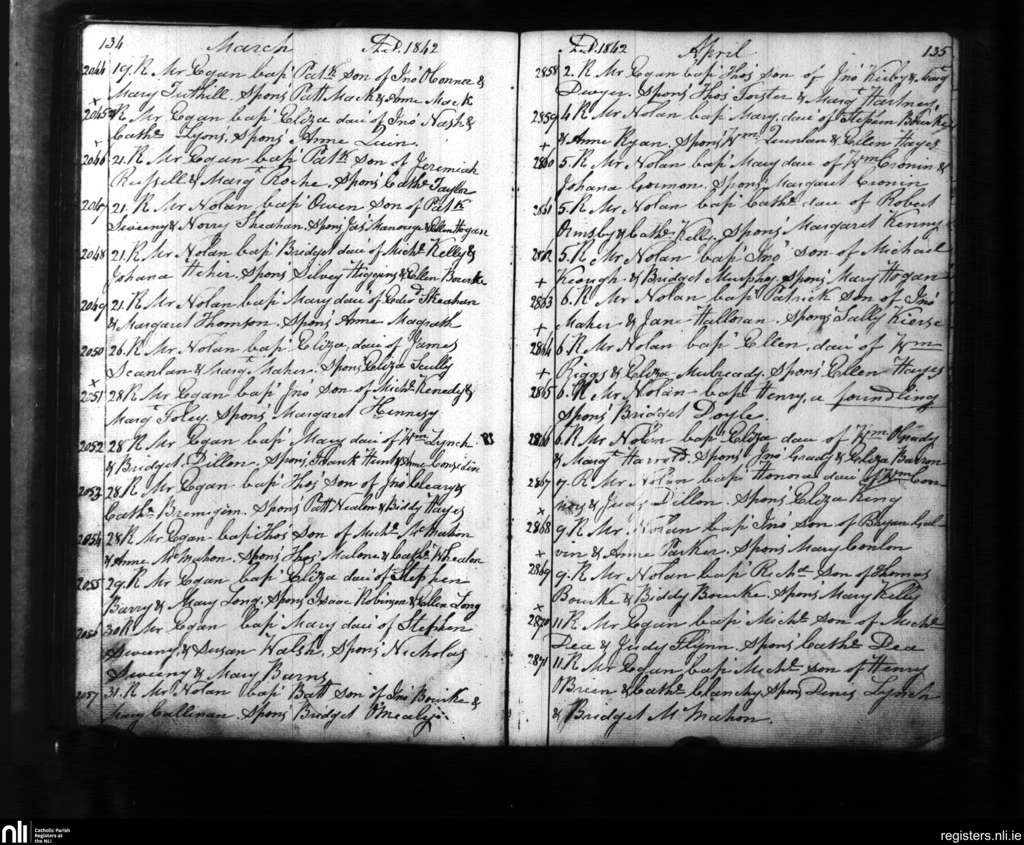 134 March A.D. 1842
2044 19. R Mr Egan bap' Patk son of Jno O'Connor &
Mary Tuthill. Spons' Patt Mack & Anne Mack
2045 R Mr Egan bap' Eliza dau' of Jno Nash &
Cathe Lyons, Spons' Anne Quin.
2046 21. R Mr Egan bap' Patk son of Jeremiah
Russell & Margt Roche. Spons' Cathe Taylor
2047 21. R Mr Nolan bap' Owen son of Patk
Sweeny & Norry Sheahan. Spons' Jas & Ellen Hogan
2048 21. R Mr Nolan bap' Bridget dau' of Michl Kelly &
Johana Heher. Spons Silvey Higgins & Ellen Bourke
2049 21. R Mr Nolan bap' Mary dau' of Edwd Sheahan
& Margaret Thomson. Spons' Anne Magrath
2050 26. R Mr Nolan bap' Eliza, dau' of James
Scanlan & Margt Maher. Spons Eliza Scully
2051 28 R Mr Egan bap' Jno' son of Michl Kenedy &
Margt Foley. Spons' Margaret Hennesy
2052 28 R Mr Egan bap' Mary dau' of Wm Lynch
& Bridget Dillon. Spons' Frank Hunt & Anne Considin
2053 28 R Mr Egan bap' Thos' son of Jno' Cleary &
Cathe. Spons' Patt Nealon & Biddy Hayes
2054 28 R Mr Egan bap' Thos' son of Michl McMahon
& Anne McMahon. Spons' Thos' Malone & Cathe Whealon
2055 29. R Mr Egan bap' Eliza dau' of Stephen
Barry & Mary Long. Spons' Isaac Robinson & Ellen Long
2056 30 R Mr Egan bap' Mary dau' of Stephen
Sweeny, & Susan Walsh, Spons' Nicholas
Sweeny & Mary Burns
2057 31. R Mr Nolan bap' Batt son of Jno' Bourke &
Callinan. Spons' Bridget O'Mealy
A.D. 1842 April 135
2858 2. R Mr Egan bap' Thos' son of Jno' Kirby & Margt
Dwyer. Spons' Thos' Forster & Margt Hartney
2859 4 R Mr Nolan bap' Mary, dau' of Stephen
& Anne Ryan. Spons' Wm Quinlan & Ellen Hayes
2860 5. R Mr Nolan bap' Mary dau' of Wm Cronin &
Johana Gorman. Spons' Margaret Cronin
2861 5. R Mr Nolan bap' Cathe dau' of Robert
Ormsby & Cathe Kelly. Spons' Margaret Kenny
2862 5. R Mr Nolan bap' Jno' son of Michael
Keough & Bridget Murphy Spons' Mary Hogan
2863 6. R Mr Nolan bap' Patrick son of Jno'
Maher & Jane Halloran. Spons' Sally Kierse
2864 6 R Mr Nolan bap' Ellen, dau' of Wm
Riggs & Eliza Mulready. Spons' Ellen Hayes
2865 6. R Mr Nolan bap' Henry, a foundling
Spons' Bridget Doyle.
2866 6. R Mr Nolan bap' Eliza dau' of Wm O'Grady
& Margt Harrold. Spons' Jno' Grady & Eliza Barron
2867 7. R Mr Nolan bap' Honora dau' of Wm Con-
nors & Judy Dillon. Spons' Eliza King
2868 9. R Mr. Nolan bap' Jno' son of Bryan Gal-
vin & Anne Parker. Spons' Mary Conlon
2869 9. R Mr Nolan bap' Richd son of Thomas
Bourke & Biddy Bourke. Spons' Mary Kelly
2870 11 R Mr Egan bap' Michl son of Michl
Dea & Judy Flynn. Spons' Cathe Dea
2871 11. R Mr Egan bap' Michl son of Henry
O'Brien & Cathe Clanchy. Spons' Denis Lynch
& Bridget McMahon.
nli Catholic Parish
Registers at
the NLI
registers.nli.ie